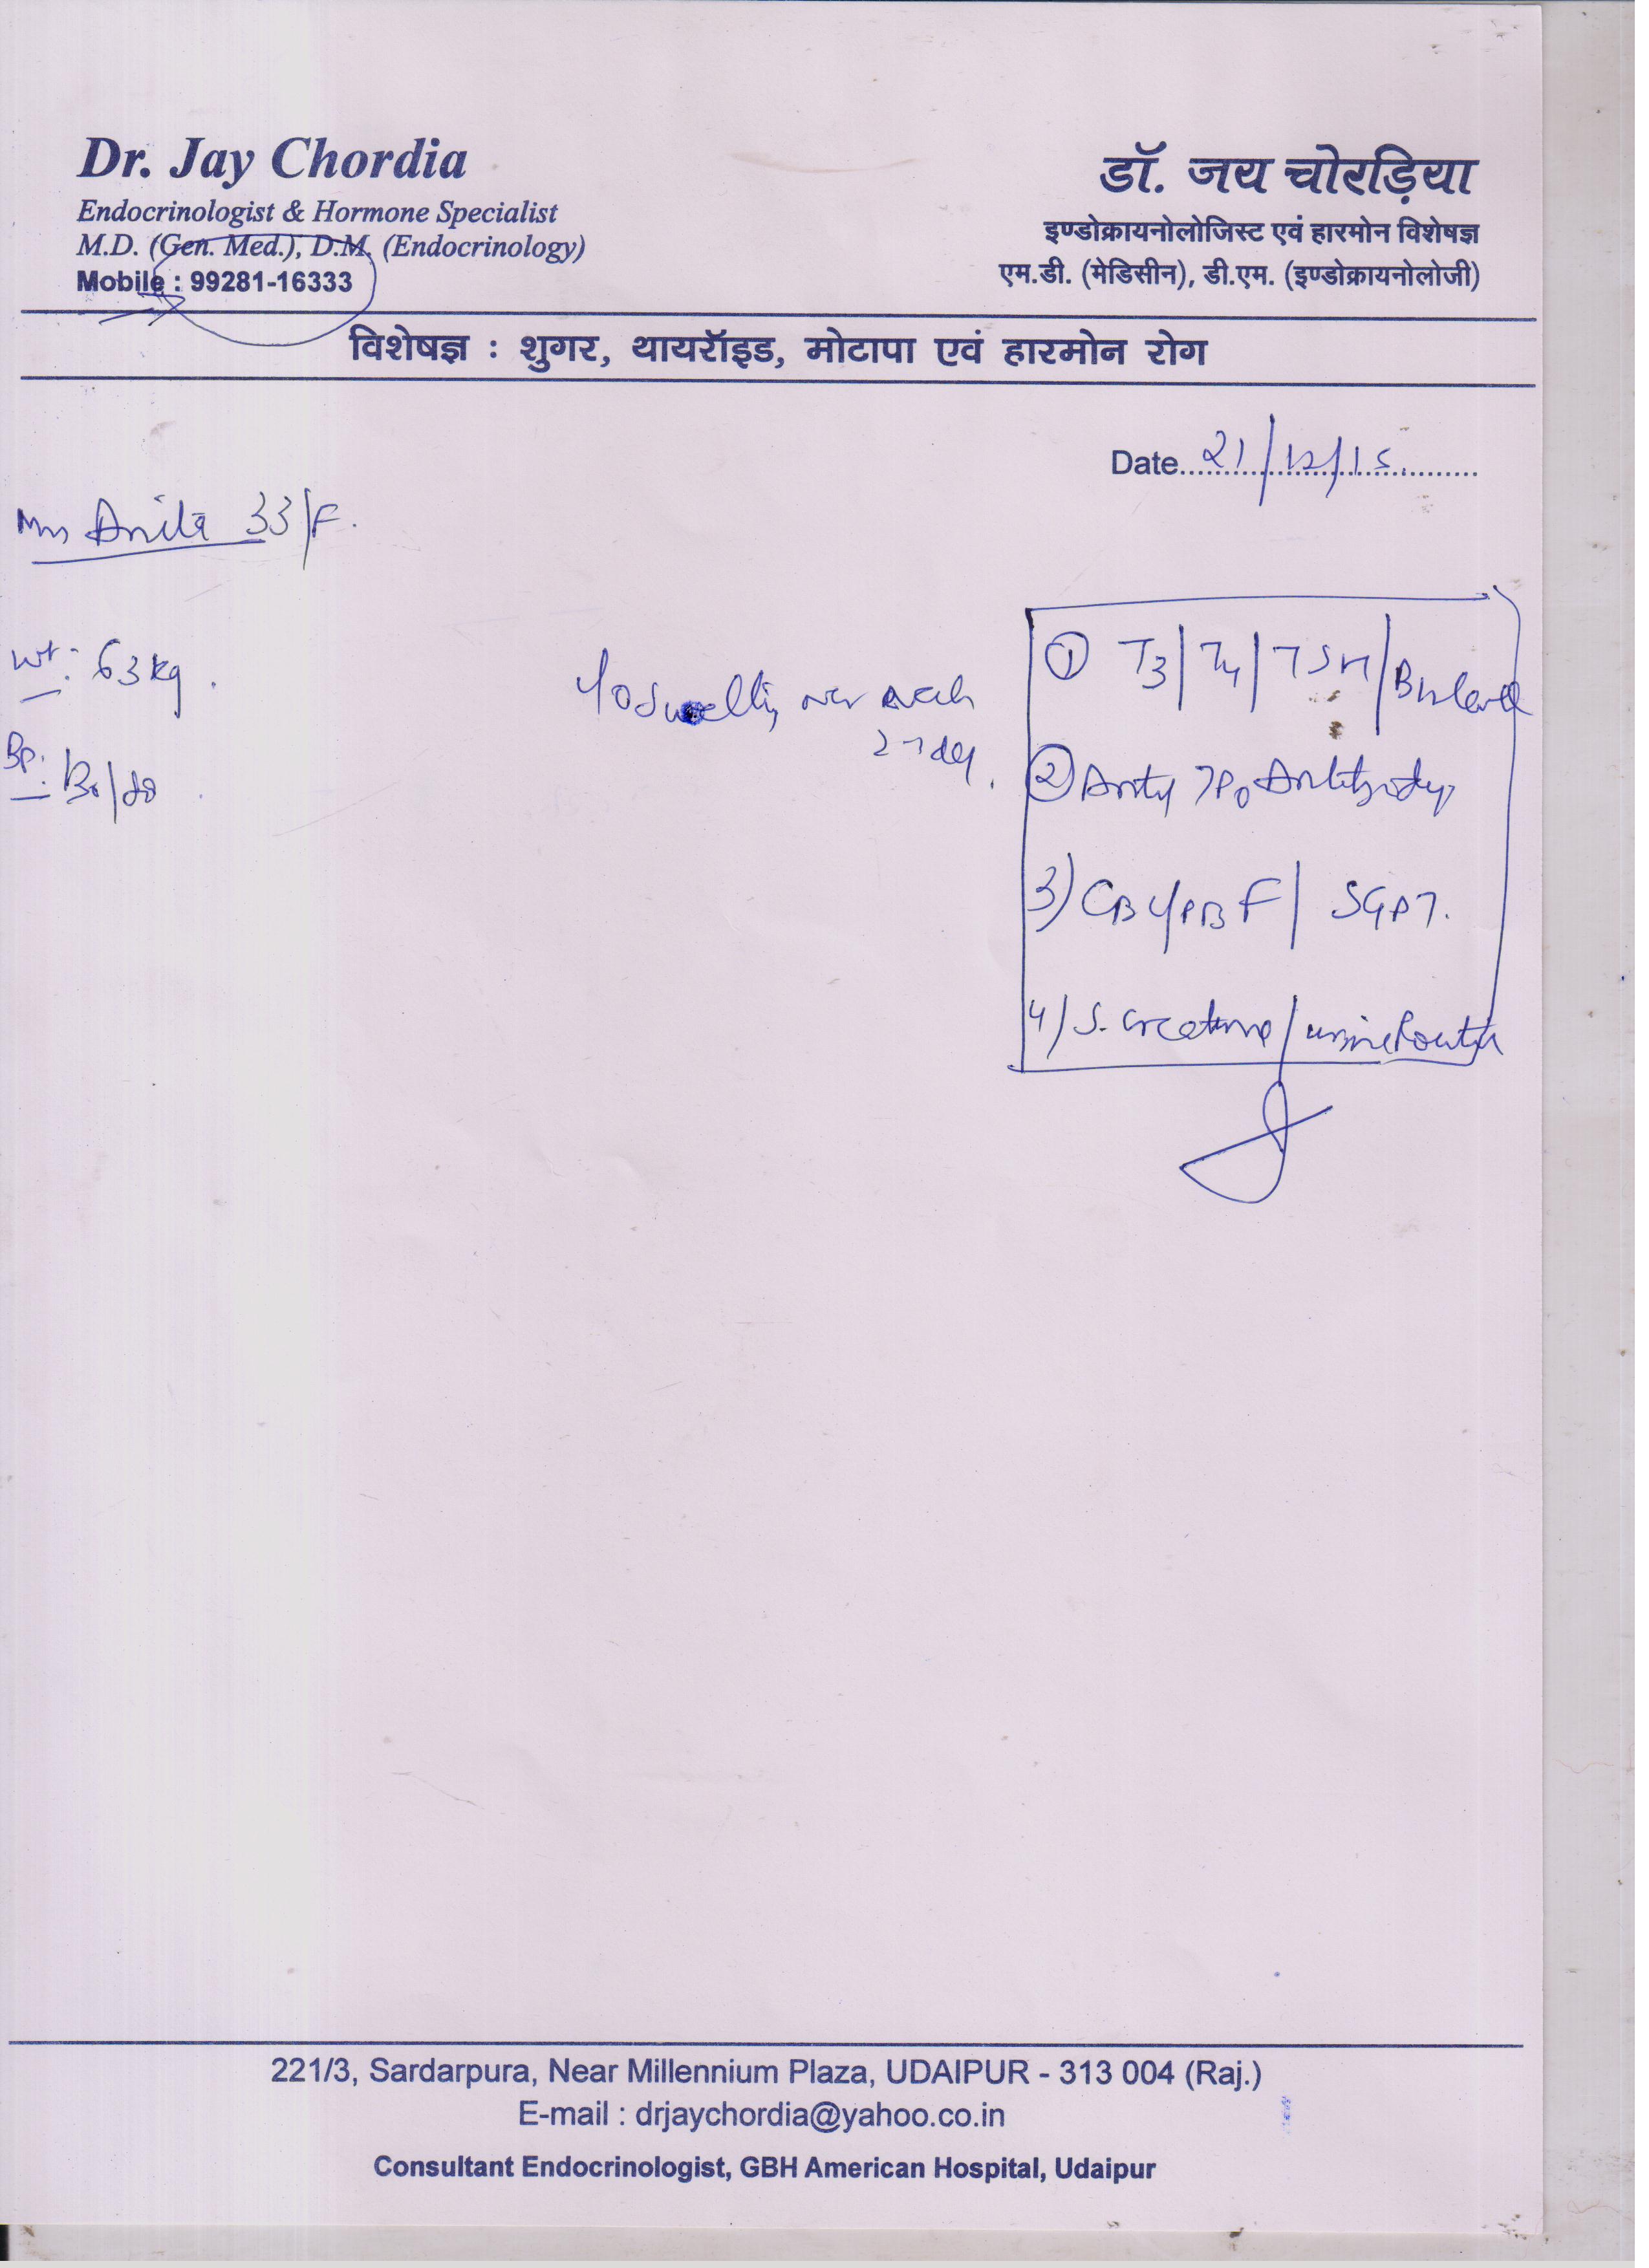 Dr. Jay Chordia
Endocrinologist & Hormone Specialist
M.D. (Gen. Med.), D.M. (Endocrinology)
Mobile : 99281-16333
डॉ. जय चोरड़िया
इण्डोक्रायनोलोजिस्ट एवं हारमोन विशेषज्ञ
एम.डी. (मेडिसीन), डी.एम. (इण्डोक्रायनोलोजी)
विशेषज्ञ : शुगर, थायरॉइड, मोटापा एवं हारमोन रोग
Date 21/12/15
Mrs Anita 33/F.
Wt: 63 kg.
BP:
swelling over neck
① T3/T4/TSH/
② Anti TPO Antibody
3) CBC/PBF/ SGPT.
4/ S. creatinine/urine Routine
221/3, Sardarpura, Near Millennium Plaza, UDAIPUR - 313 004 (Raj.)
E-mail : drjaychordia@yahoo.co.in
Consultant Endocrinologist, GBH American Hospital, Udaipur